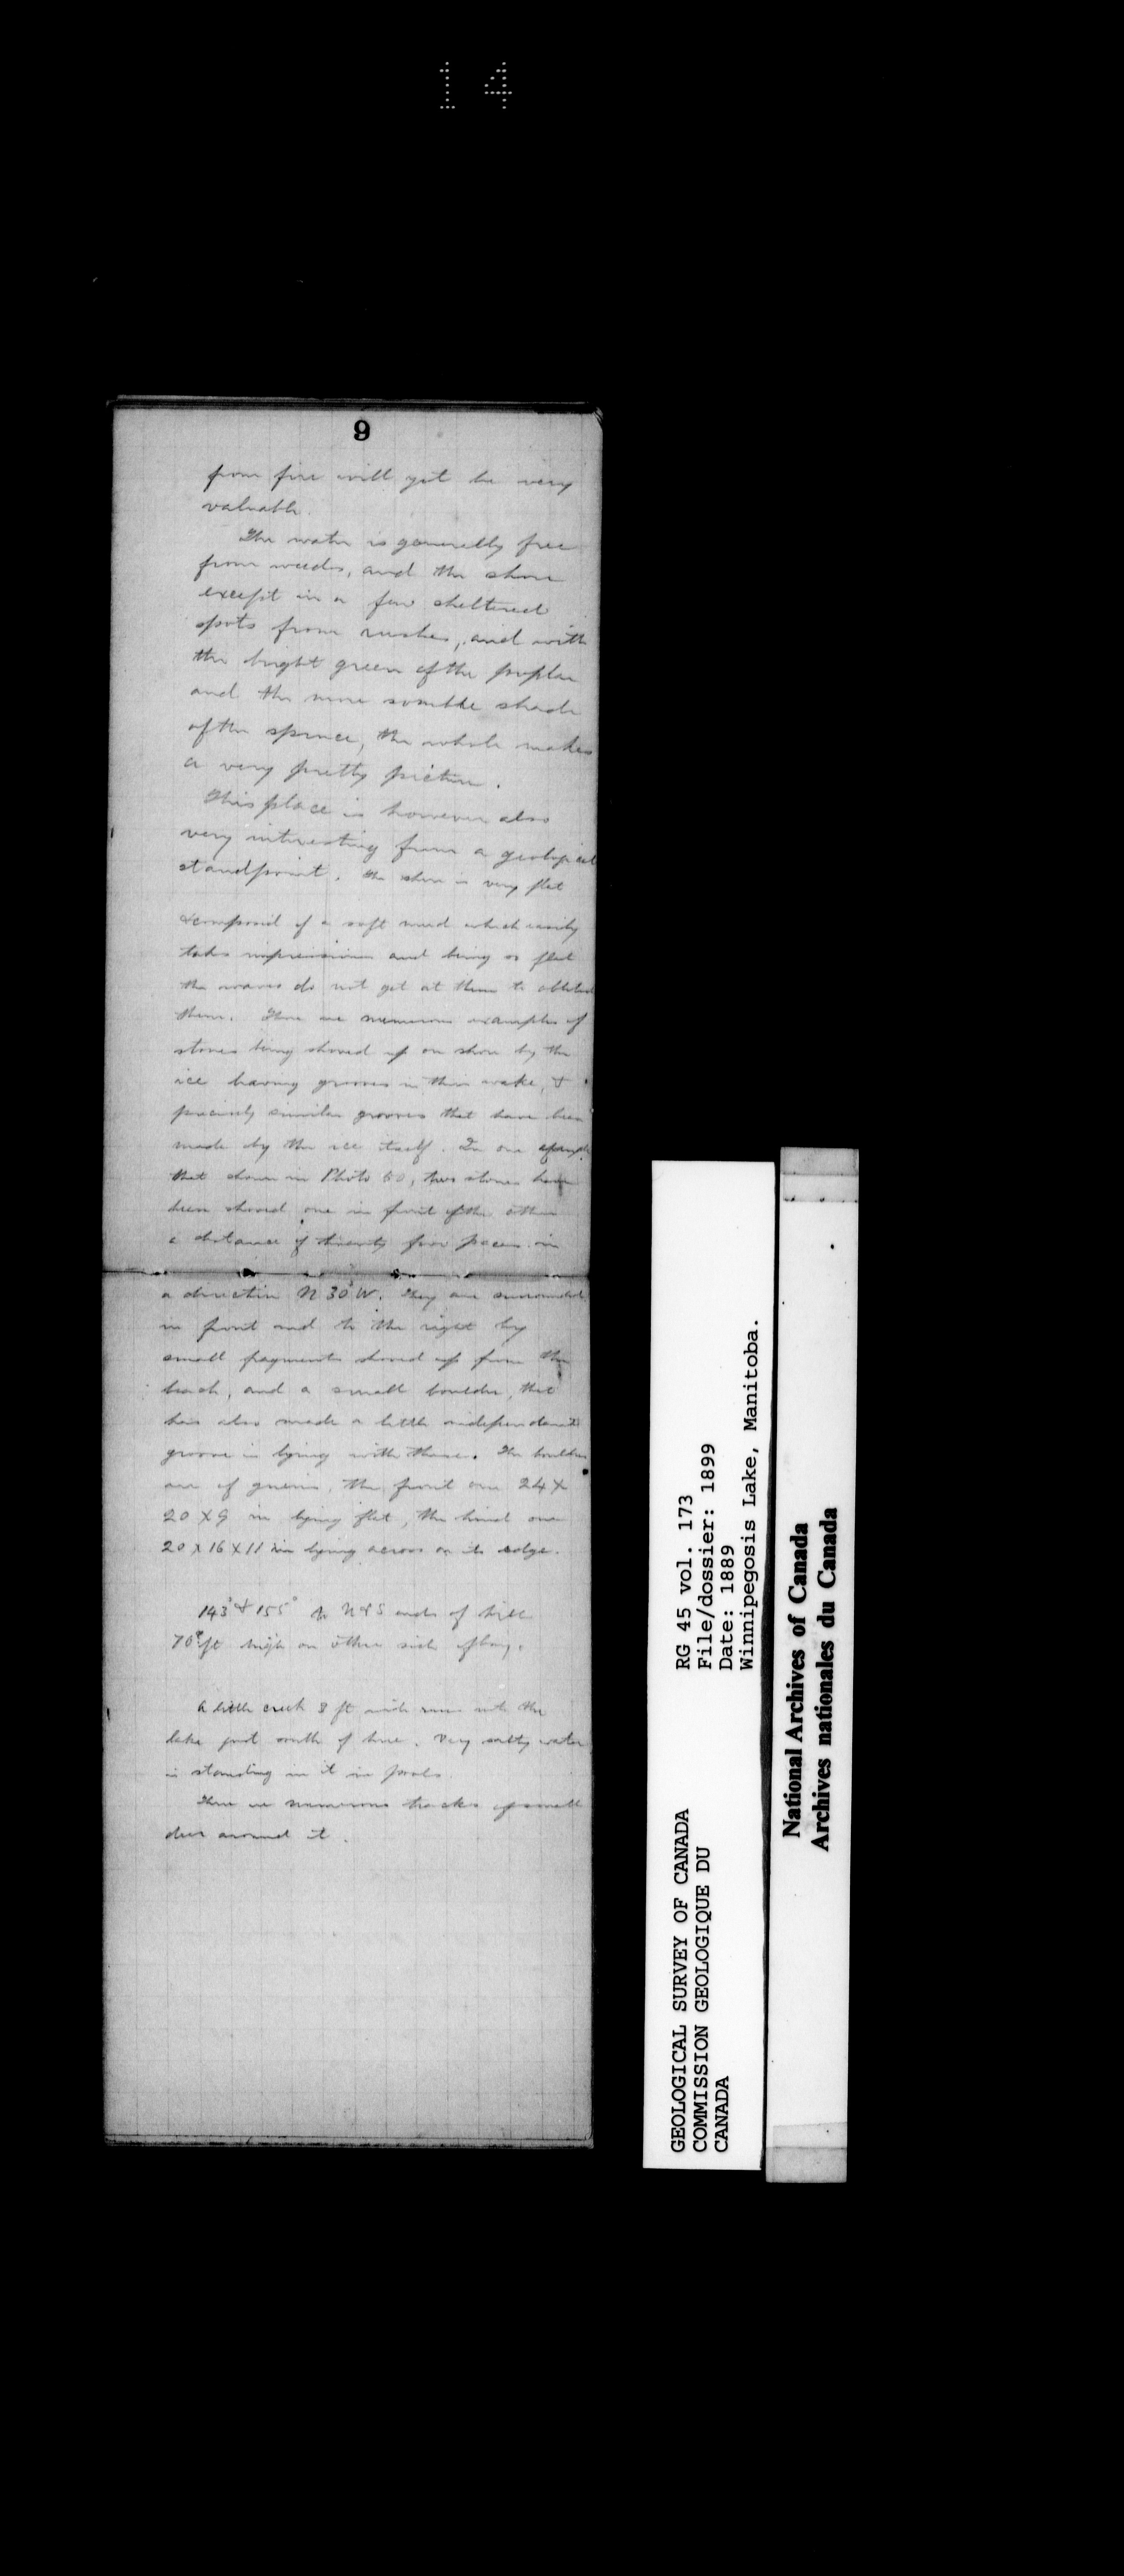 14
9
from fire will yet be very
valuable.
The water is generally free
from weeds, and the shore
except in a few sheltered
spots from rushes, and with
the bright green of the poplar
and the more sombre shade
of the spruce, the whole makes
a very pretty picture.
This place is however also
very interesting from a geological
standpoint. The shore is very flat
& composed of a soft mud which easily
takes impressions and being so flat
the waves do not get at them to
them. There are numerous examples of
stones being shoved up on shore by the
ice leaving grooves in their wake, &
precisely similar grooves that have been
made by the ice itself. In one example
that shown in Photo 60, two stones have
been shoved one in front of the other
a distance of twenty four paces in
a direction N 30° W. They are surrounded
in front and to the right by
small fragments shoved up from the
beach, and a small boulder, that
has also made a little independent
groove is lying with these. The boulders
are of gneiss, the front one 24 X
20 X 9 in lying flat, the hind one
20 X 16 X 11 in lying across on its edge.
143° & 155° to N & S ends of hill
70 ft high on other side of bay.
A little creek 8 ft wide runs into the
lake just south of here. Very salty water
is standing in it in pools.
There are numerous tracks of small
deer around it.
GEOLOGICAL SURVEY OF CANADA
COMMISSION GEOLOGIQUE DU
CANADA
RG 45 vol. 173
File/dossier: 1899
Date: 1889
Winnipegosis Lake, Manitoba.
National Archives of Canada
Archives nationales du Canada